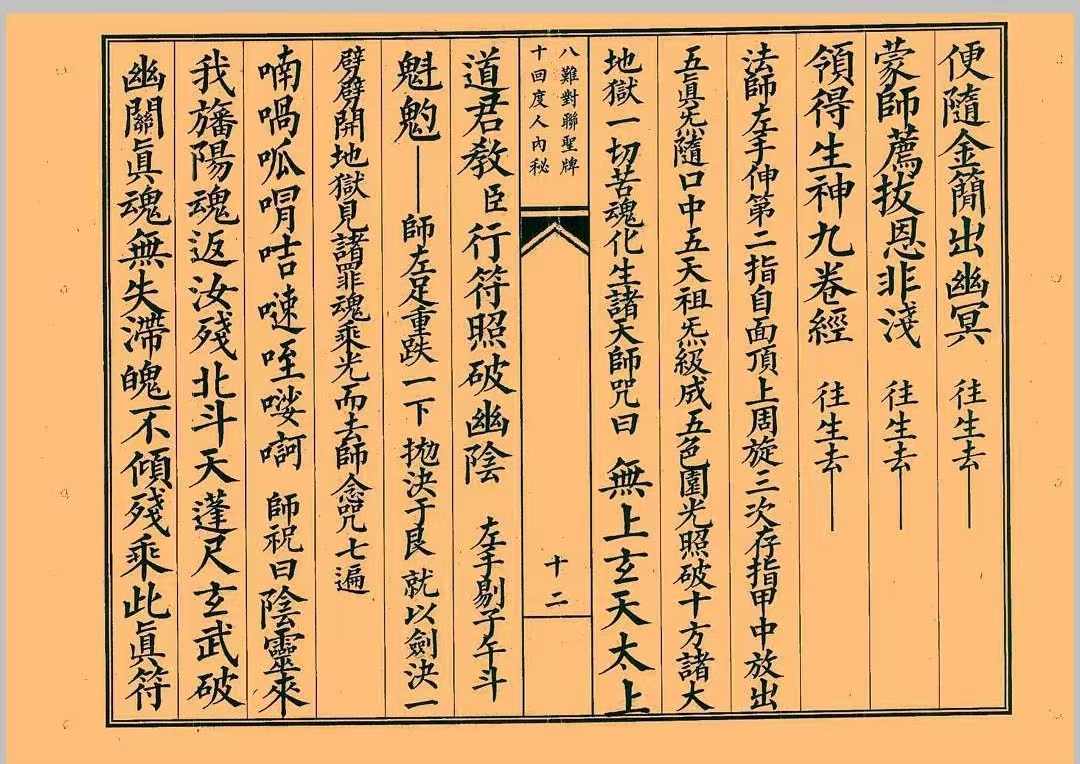 便隨金簡出幽冥　往生去——
蒙師薦拔恩非淺　往生去——
領得生神九卷經　往生去——
法師左手伸第二指自面頂上周旋三次存指甲中放出
五眞炁隨口中五天祖炁級成五色圓光照破十方諸大
地獄一切苦魂化生諸天師咒曰　無上玄天太上
八難對聯聖牌
十回度人內秘
十二
道君敎臣行符照破幽陰　左手剔子午斗
魁魡——師左足重跌一下拋決于艮就以劍決一
劈劈開地獄見諸罪魂乘光而去師念咒七遍
喃喎呱喟咭噠咥㗼啊　師祝曰陰靈來
我旛陽魂返汝殘北斗天蓬尺玄武破
幽關眞魂無失滯魄不傾殘乘此眞符